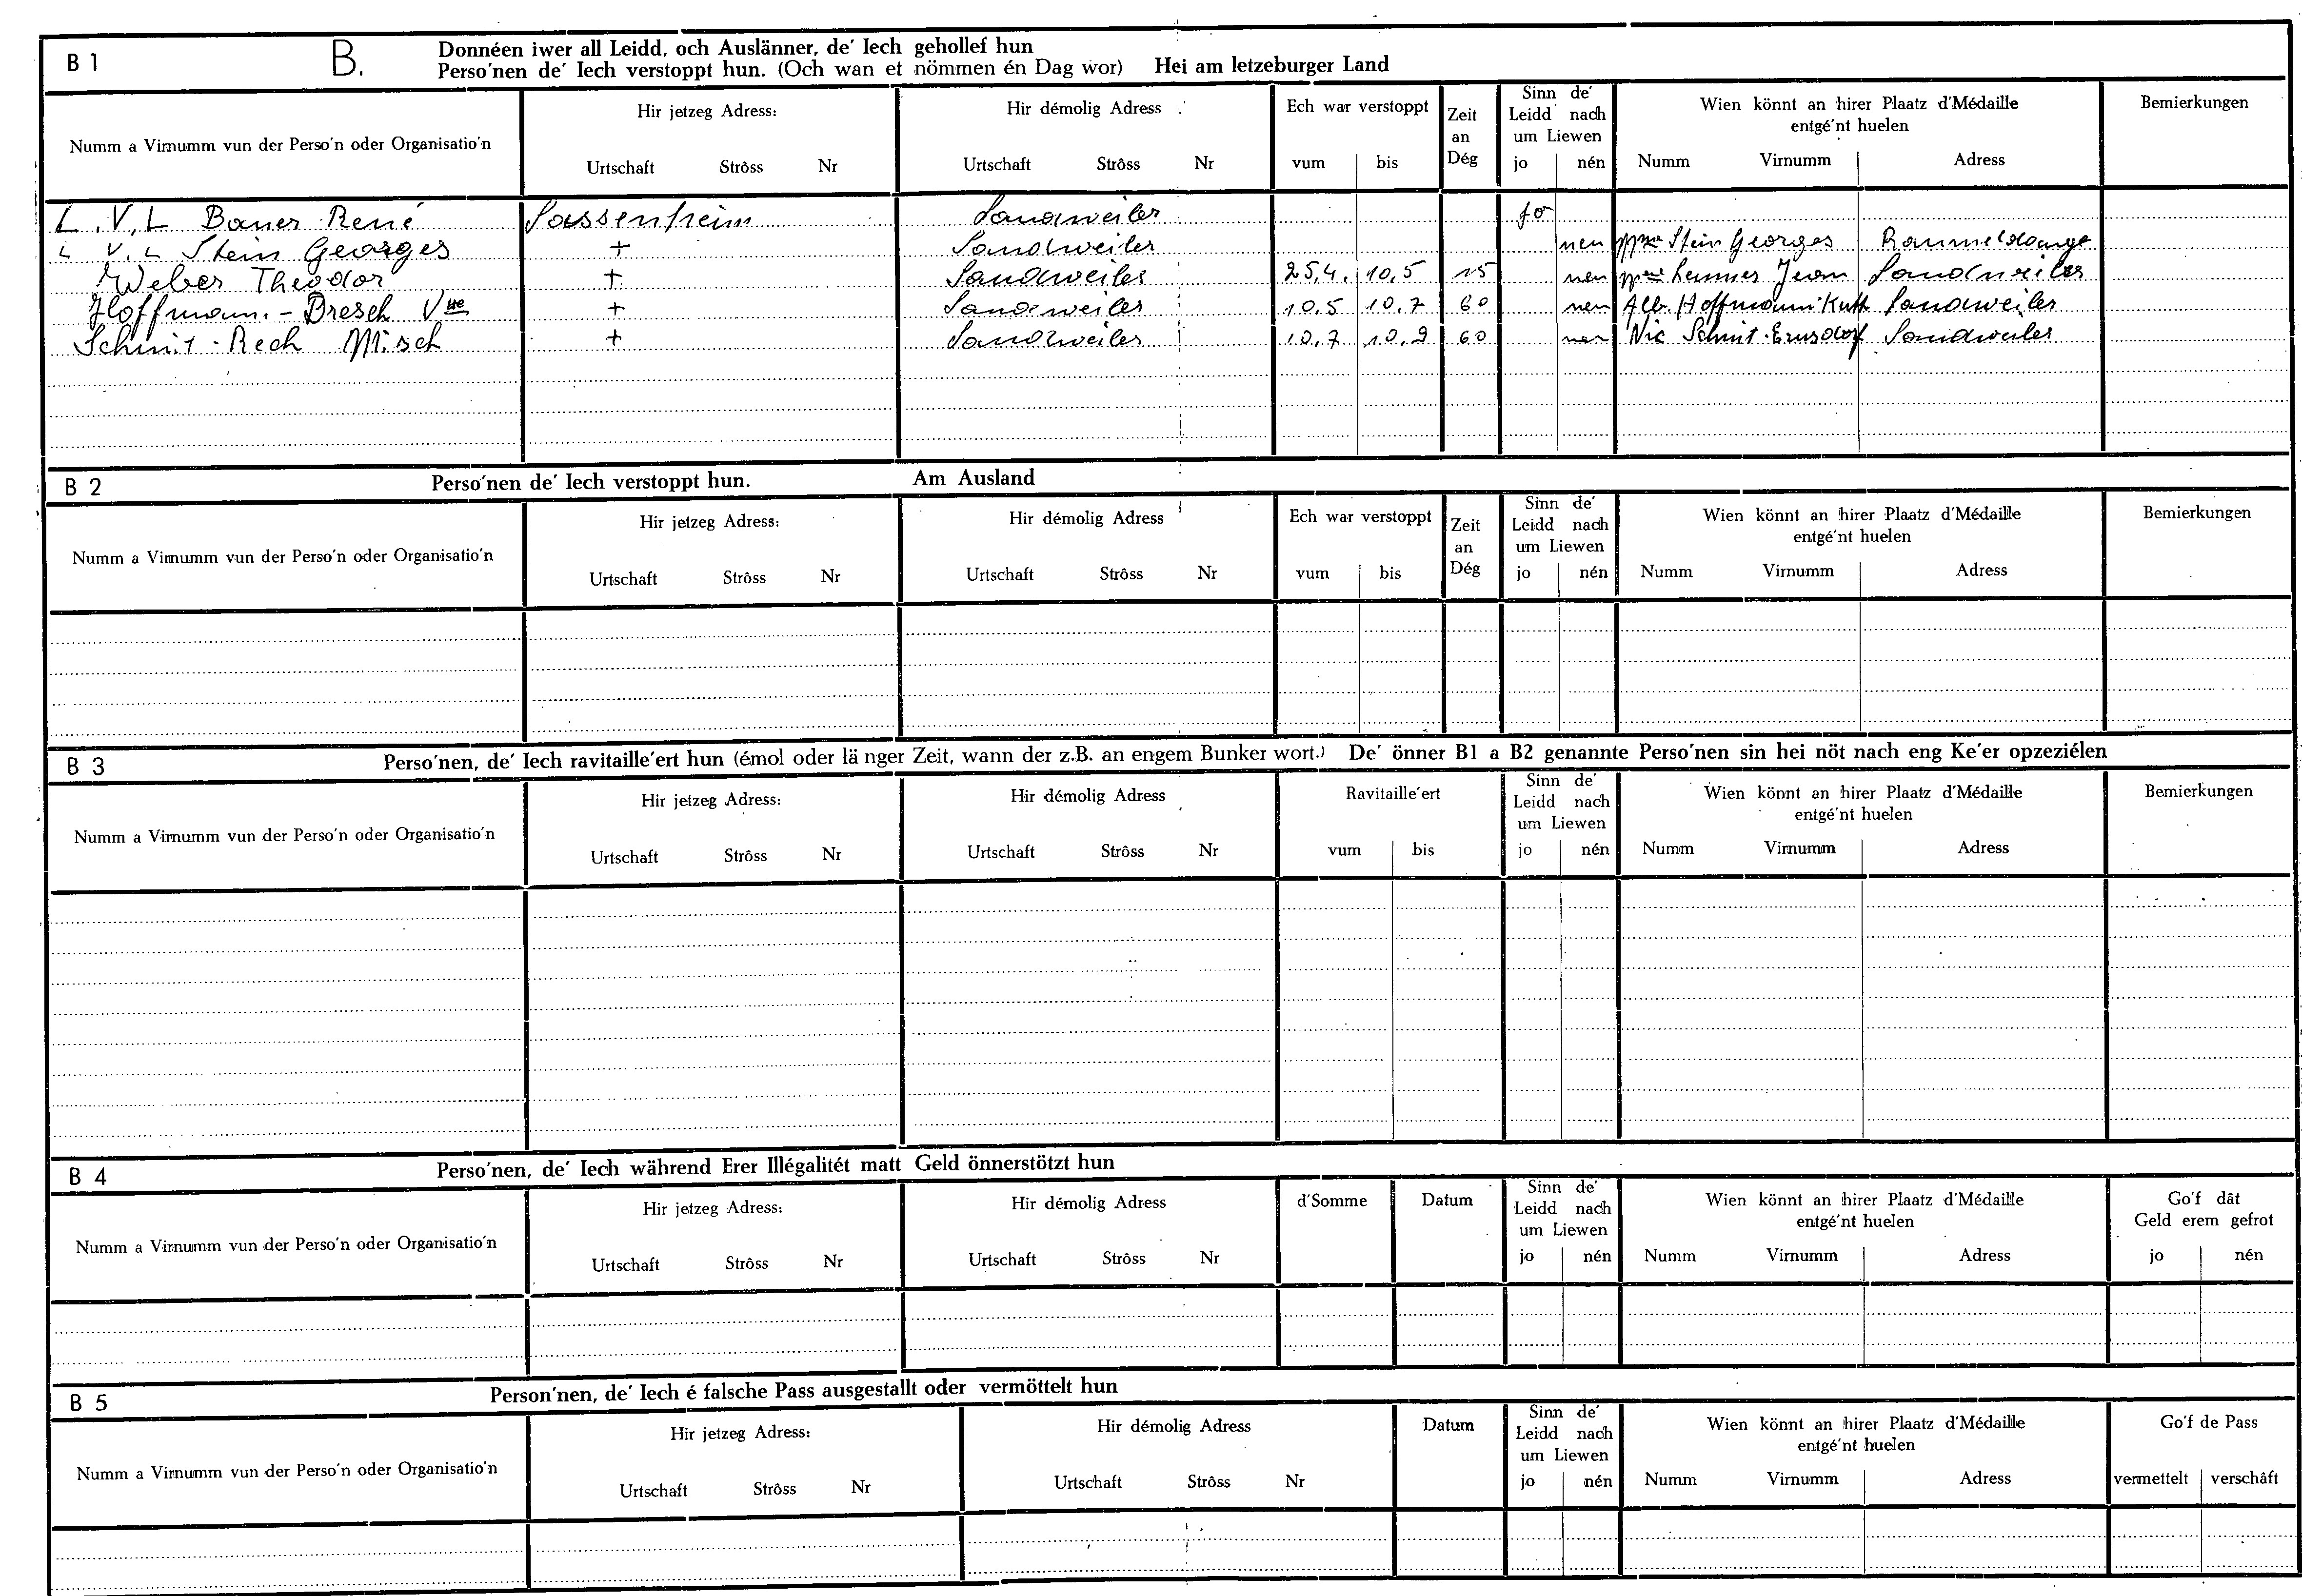 B 1 B. Donnéen iwer all Leidd, och Auslänner, de' Iech gehollef hun
Perso'nen de' Iech verstoppt hun. (Och wan et nömmen én Dag wor) Hei am letzeburger Land
Numm a Virnumm vun der Perso'n oder Organisatio'n
Hir jetzeg Adress:
Urtschaft Strôss Nr
Hir démolig Adress
Urtschaft Strôss Nr
Ech war verstoppt
vum bis
Zeit
an
Dég
Sinn de'
Leidd nach
um Liewen
jo nén
Wien könnt an hirer Plaatz d'Médaille
entgé'nt huelen
Numm Virnumm Adress
Bemierkungen
L.V.L Bauer René Sassenheim Sandweiler jo
L V.L Stein Georges + Sandweiler nen Stein Georges Rammeldange
Weber Theodor + Sandweiler 25,4. 10,5 15 nen Lemmer Jean Sandweiler
Hoffmann - Dresch Vve + Sandweiler 10,5 10,7 60 nen Alb. Hoffmann Sandweiler
Schmit - Rech Misch + Sandweiler 10,7 10,9 60 nen Nic Schmit-Ernsdorf Sandweiler
B 2 Perso'nen de' Iech verstoppt hun. Am Ausland
Numm a Virnumm vun der Perso'n oder Organisatio'n
Hir jetzeg Adress:
Urtschaft Strôss Nr
Hir démolig Adress
Urtschaft Strôss Nr
Ech war verstoppt
vum bis
Zeit
an
Dég
Sinn de'
Leidd nach
um Liewen
jo nén
Wien könnt an hirer Plaatz d'Médaille
entgé'nt huelen
Numm Virnumm Adress
Bemierkungen
B 3 Perso'nen, de' Iech ravitaille'ert hun (émol oder länger Zeit, wann der z.B. an engem Bunker wort.) De' önner B1 a B2 genannte Perso'nen sin hei nöt nach eng Ke'er opzeziélen
Numm a Virnumm vun der Perso'n oder Organisatio'n
Hir jetzeg Adress:
Urtschaft Strôss Nr
Hir démolig Adress
Urtschaft Strôss Nr
Ravitaille'ert
vum bis
Sinn de'
Leidd nach
um Liewen
jo nén
Wien könnt an hirer Plaatz d'Médaille
entgé'nt huelen
Numm Virnumm Adress
Bemierkungen
B 4 Perso'nen, de' Iech während Erer Illégalitét matt Geld önnerstötzt hun
Numm a Virnumm vun der Perso'n oder Organisatio'n
Hir jetzeg Adress:
Urtschaft Strôss Nr
Hir démolig Adress
Urtschaft Strôss Nr
d'Somme
Datum
Sinn de'
Leidd nach
um Liewen
jo nén
Wien könnt an hirer Plaatz d'Médaille
entgé'nt huelen
Numm Virnumm Adress
Go'f dât
Geld erem gefrot
jo nén
B 5 Person'nen, de' Iech é falsche Pass ausgestallt oder vermöttelt hun
Numm a Virnumm vun der Perso'n oder Organisatio'n
Hir jetzeg Adress:
Urtschaft Strôss Nr
Hir démolig Adress
Urtschaft Strôss Nr
Datum
Sinn de'
Leidd nach
um Liewen
jo nén
Wien könnt an hirer Plaatz d'Médaille
entgé'nt huelen
Numm Virnumm Adress
Go'f de Pass
vermettelt verschâft